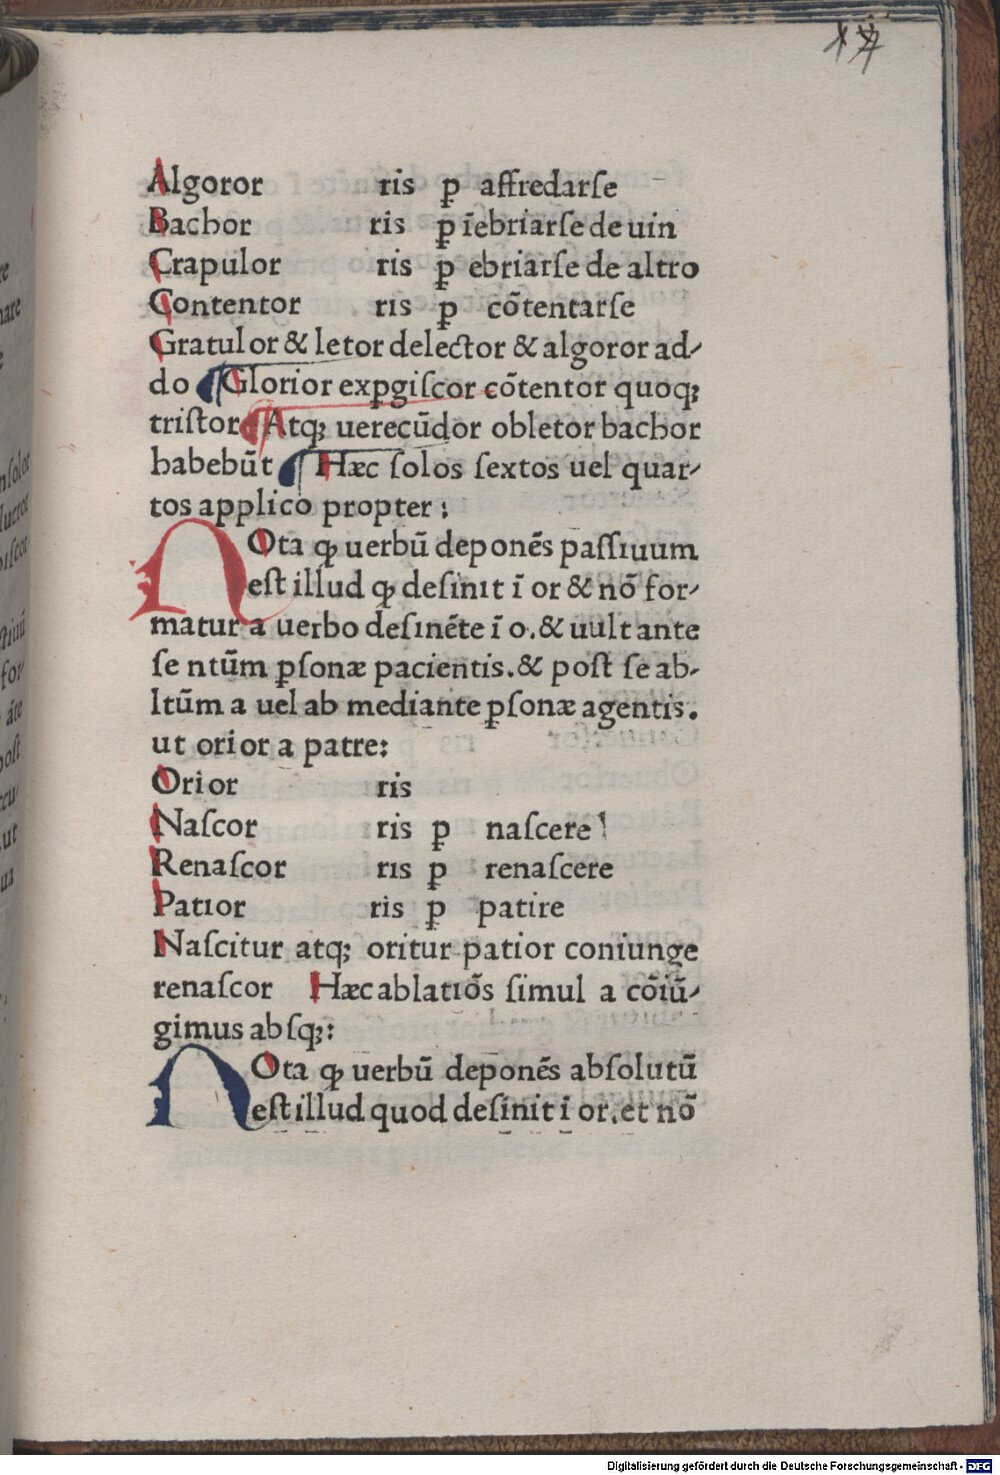 Algoror ris ꝑ affredarſe
Bachor ris ꝑ īebriarſe de uin
Crapulor ris ꝑ ebriarſe de altro
Contentor ris ꝑ cōtentarſe
Gratulor & letor delector & algoror ad-
do ¶ Glorior expꝑgiſcor cōtentor quoqꝫ
triſtor ¶ Atqꝫ uerecūdor obletor bachor
habebūt ¶ Hæc ſolos ſextos uel quar-
tos applico propter:
NOta ꝙ uerbū deponēs paſſiuum
eſt illud ꝙ deſinit ī or & nō for-
matur a uerbo deſinēte ī o. & uult ante
ſe ntūm ꝑſonæ pacientis. & poſt ſe ab-
ltūm a uel ab mediante ꝑſonæ agentis.
ut orior a patre:
Orior ris
Naſcor ris ꝑ naſcere
Renaſcor ris ꝑ renaſcere
Patior ris ꝑ patire
Naſcitur atqꝫ oritur patior coniunge
renaſcor Hæc ablatiōs ſimul a cōiū-
gimus abſqꝫ:
NOta ꝙ uerbū deponēs abſolutū
eſt illud quod deſinit ī or. et nō
Digitalisierung gefördert durch die Deutsche Forschungsgemeinschaft - DFG